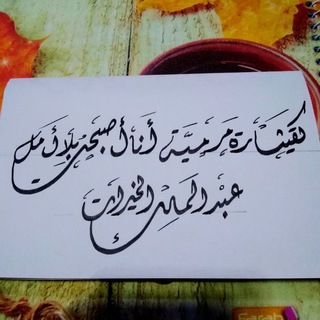 كقيثارة مرمية أنا أصبحت بلا أمل
عبدالملك الخيرات